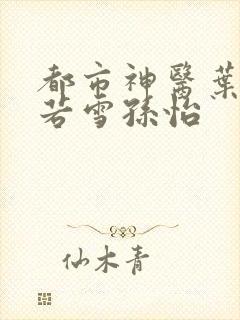 都市神醫葉
若雪孫怡
仙木青